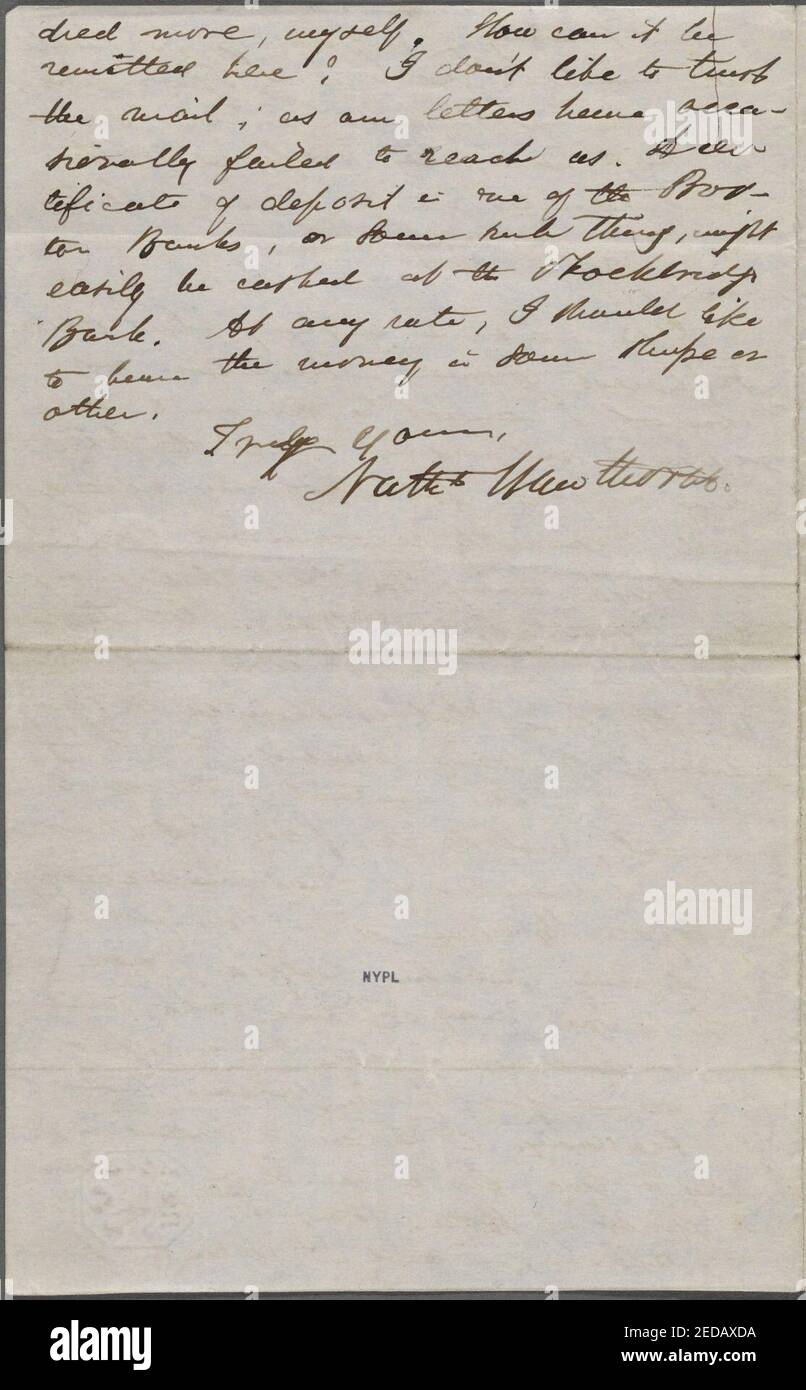 dred more, myself. How can it be
remitted here? I don't like to trust
the mail; as our letters have occa-
sionally failed to reach us. A cer-
tificate of deposit in one of the Bos-
ton Banks, or some such thing, might
easily be cashed at the Stockbridge
Bank. At any rate, I should like
to have the money in some shape or
other.
Truly Yours,
Nathl Hawthorne.
NYPL
alamy
alamy
a
alamy
Image ID: 2EDAXDA
www.alamy.com